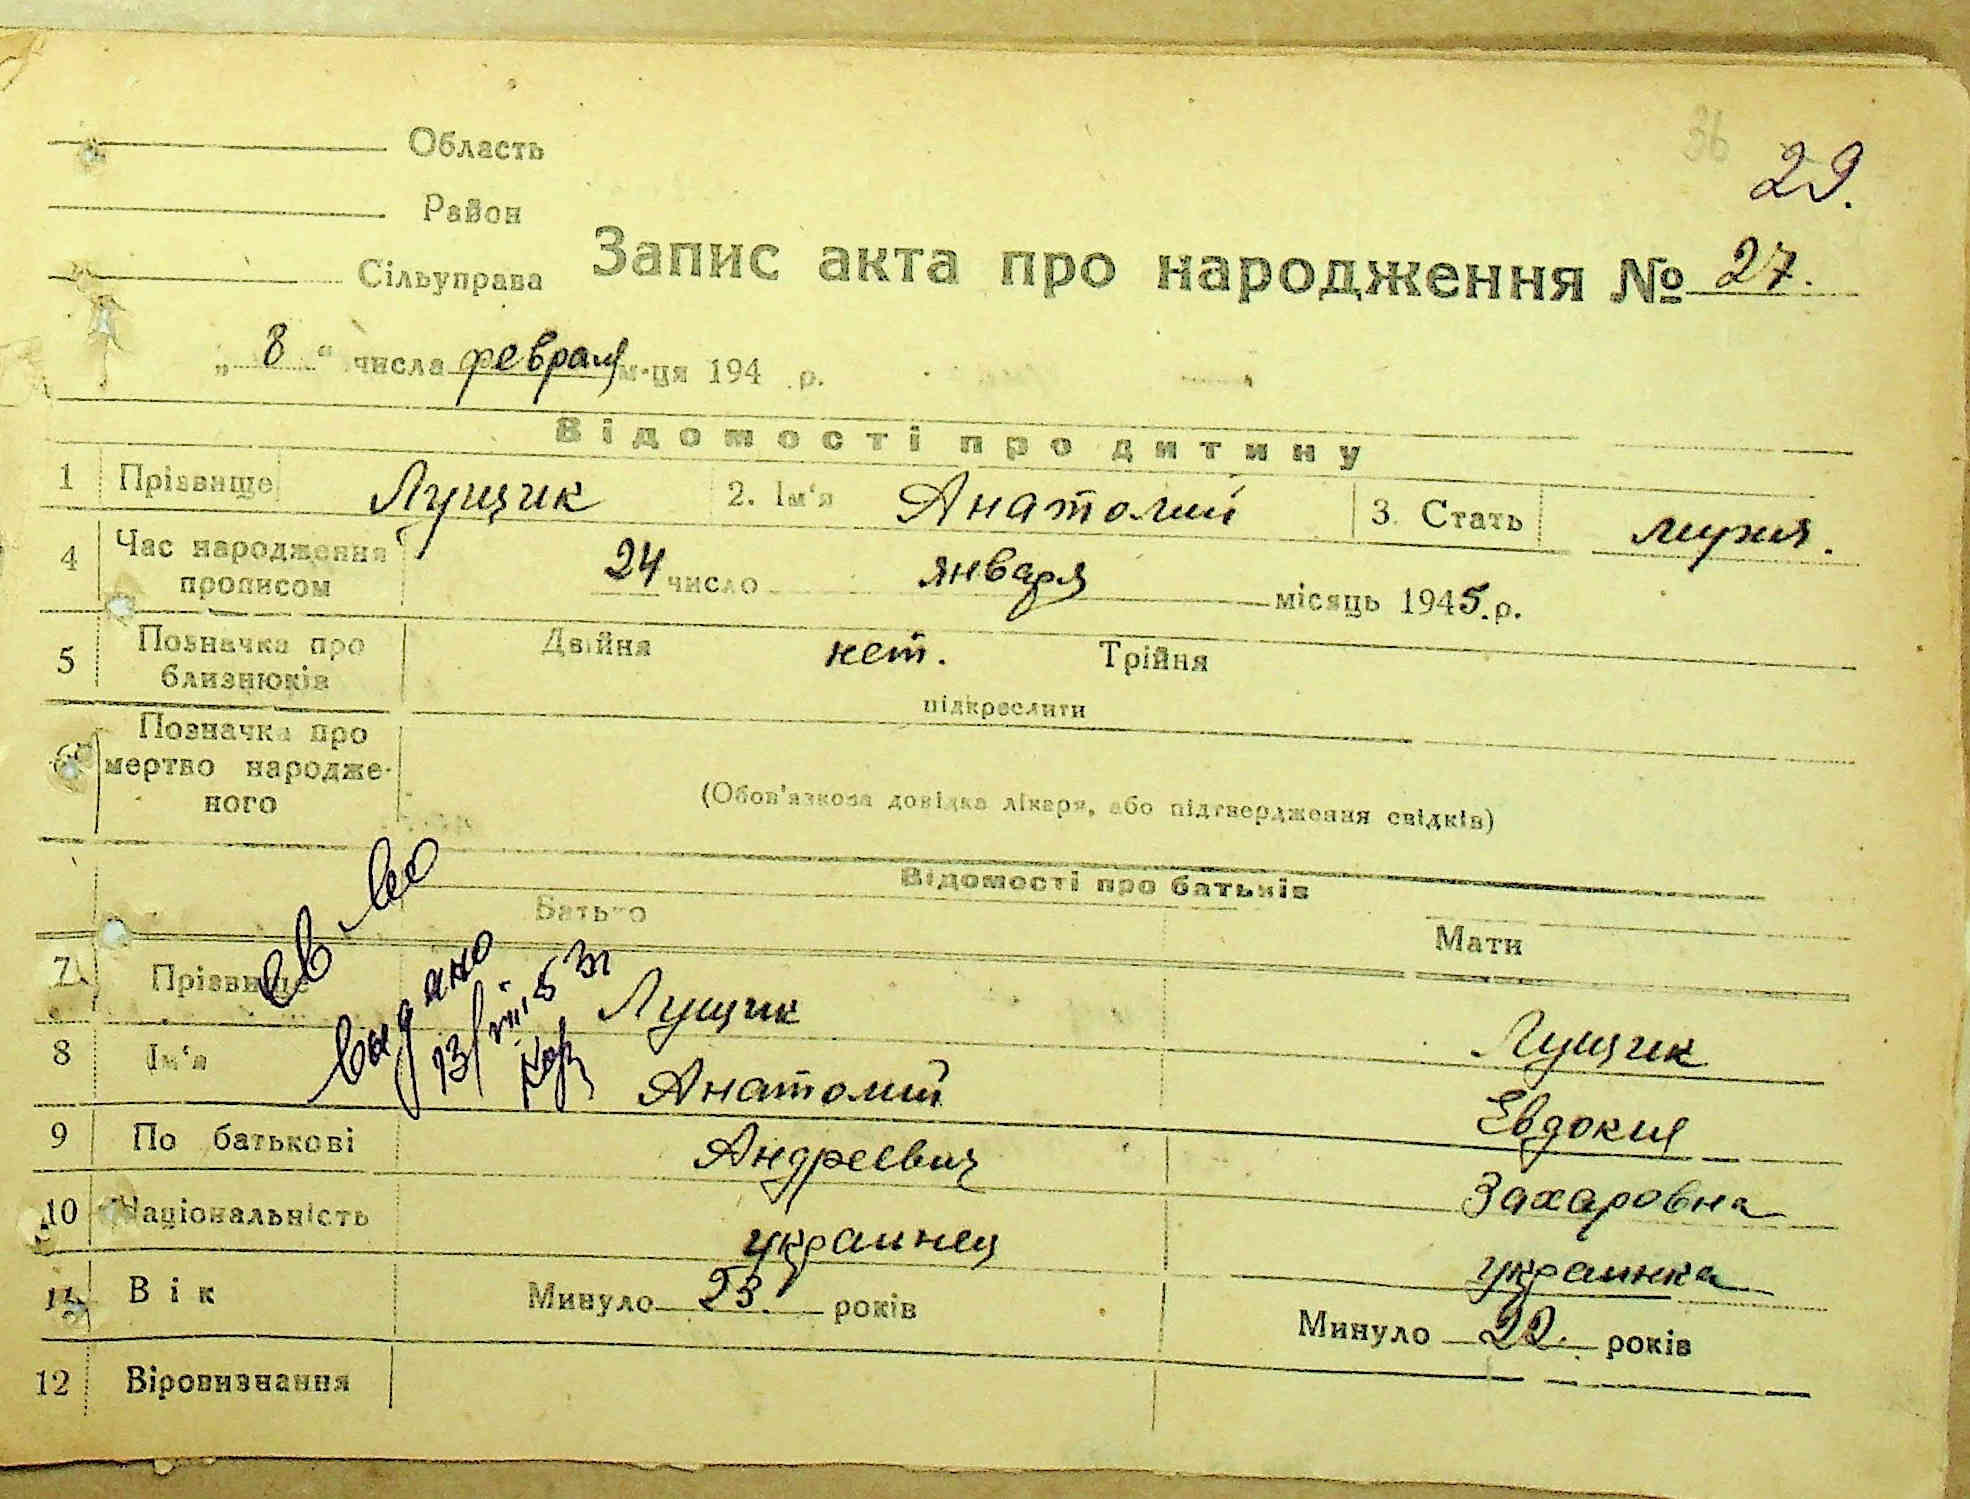 36
29.
Область
Район
Сільуправа
Запис акта про народження № 27.
„ 8 “ числа февраля м-ця 194 р.
Відомості про дитину
1 Прізвище Лущик 2. Ім'я Анатолий 3. Стать мужя.
4 Час народження прописом 24 число января місяць 1945.р.
5 Позначка про близнюків Двійня нет. Трійня
підкреслити
Позначка про мертво народже-
ного
(Обов'язкова довідка лікаря, або підтвердження свідків)
Відомості про батьків
Батько Мати
7 Прізвище Лущик Лущик
8 Ім'я Анатолий Евдокия
св-во
выдано
13/VII 53г
9 По батькові Андреевич Захаровна
10 Національність украинец украинка
11 Вік Минуло 23. років Минуло 22. років
12 Віровизнання